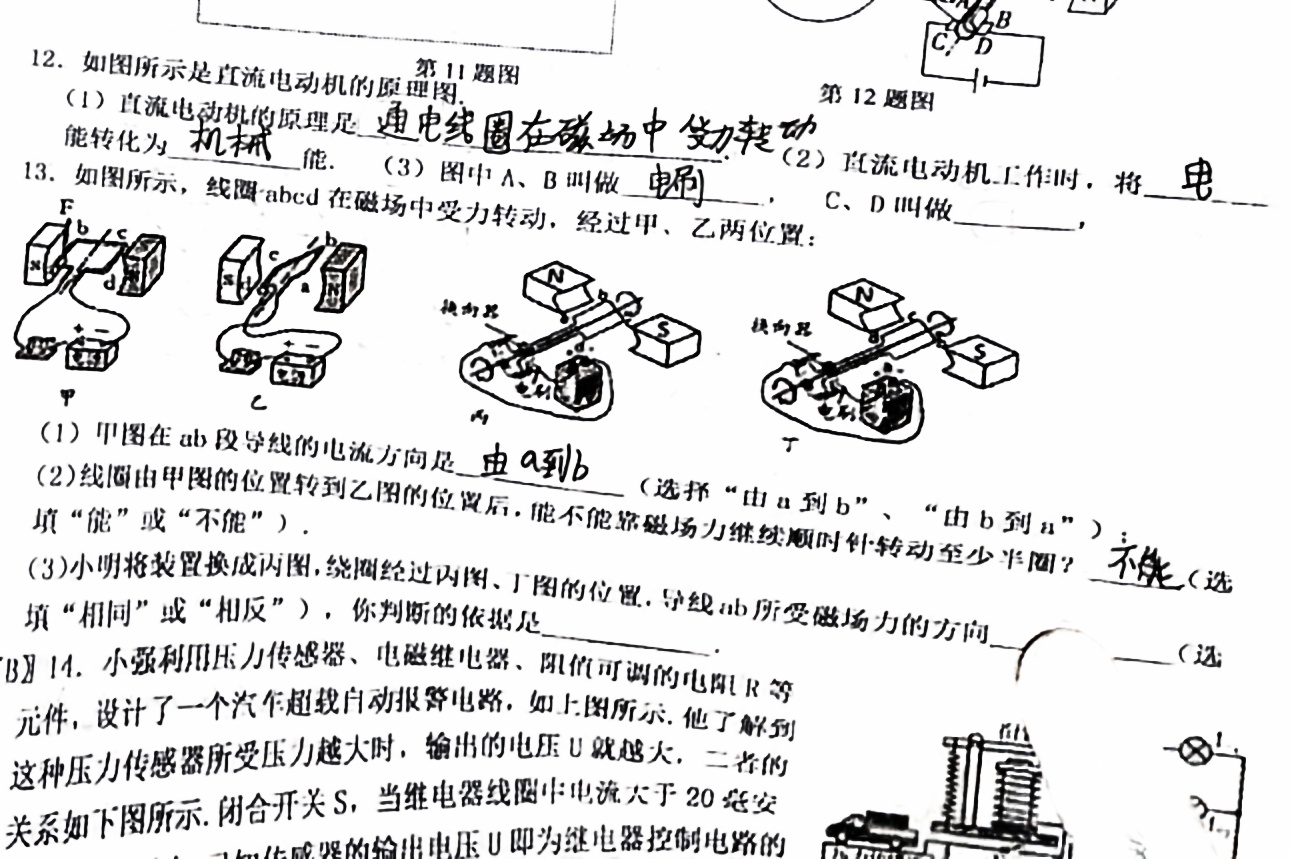 A
B
C
D
第 11 题图
第 12 题图
12. 如图所示是直流电动机的原理图.
(1) 直流电动机的原理是 通电线圈在磁场中受力转动 . (2) 直流电动机工作时, 将 电
能转化为 机械 能. (3) 图中 A、B 叫做 电刷 , C、D 叫做 ,
13. 如图所示, 线圈 abcd 在磁场中受力转动, 经过甲、乙两位置:
F
b c
S
d
N
+ −
甲
c b
S d
a N
+ −
乙
换向器
N
S
电刷
丙
换向器
N
S
电刷
丁
(1) 甲图在 ab 段导线的电流方向是 由a到b (选择“由 a 到 b”、“由 b 到 a”);
(2)线圈由甲图的位置转到乙图的位置后, 能不能靠磁场力继续顺时针转动至少半圈? 不能 (选
填“能”或“不能”).
(3)小明将装置换成丙图, 绕圈经过丙图、丁图的位置, 导线 ab 所受磁场力的方向 (选
填“相同”或“相反”), 你判断的依据是 .
B〗14. 小强利用压力传感器、电磁继电器、阻值可调的电阻 R 等
元件, 设计了一个汽车超载自动报警电路, 如上图所示. 他了解到
这种压力传感器所受压力越大时, 输出的电压 U 就越大, 二者的
关系如下图所示. 闭合开关 S, 当继电器线圈中电流大于 20 毫安
传感器的输出电压 U 即为继电器控制电路的